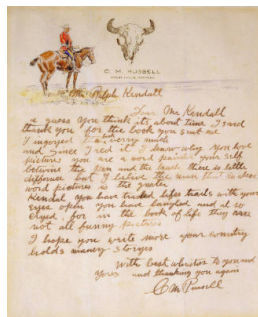 C. M. RUSSELL
Mr Ralph Kendall
Dear Mr Kendall
I guess you think it about time I said
thank you for the book you sent me
I injoyed it very much
and since I red it I know why you like
pictures you are a word painter your self
betwine the pen and the brush there is little
diffornce but I believe the man that makes
word pictures is the greater
Kendal you have traded lifes trails with your
eyes open you have laughed and al so
cryed for in the book of life they are
not all funny pictures
I hope you write more your country
holds maney storyes
With best whishes to you and
yors and thanking you again
C M Russell